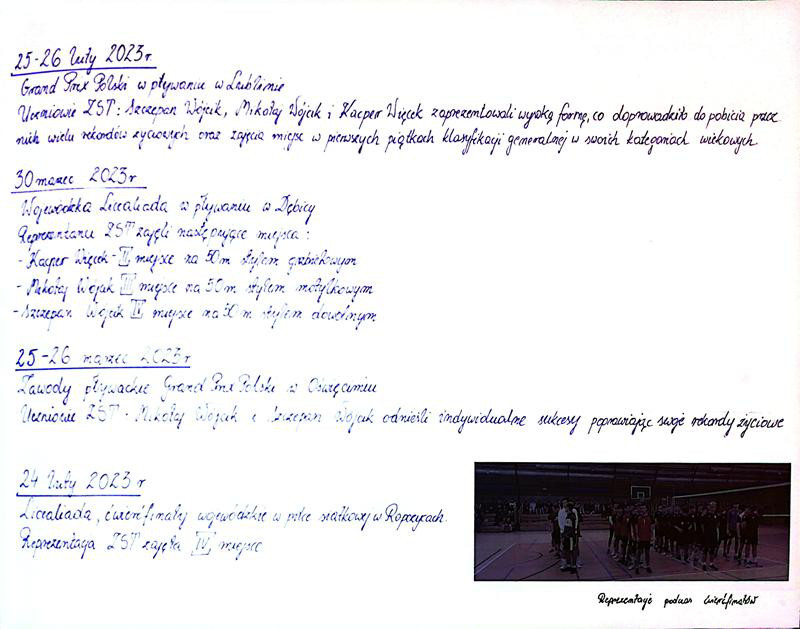 25-26 luty 2023r.
Grand Prix Polski w pływaniu w Lublinie
Uczniowie ZST: Szczepan Wójcik, Mikołaj Wójcik i Kacper Więcek zaprezentowali wysoką formę, co doprowadziło do pobicia przez
nich wielu rekordów życiowych oraz zajęcia miejsc w pierwszych piątkach klasyfikacji generalnej w swoich kategoriach wiekowych.
30 marzec 2023r.
Wojewódzka Licealiada w pływaniu w Dębicy
Reprezentanci ZST zajęli następujące miejsca:
- Kacper Więcek - II miejsce na 50m stylem grzbietowym
- Mikołaj Wójcik III miejsce na 50m stylem motylkowym
- Szczepan Wójcik IV miejsce na 50 m stylem dowolnym
25-26 marzec 2023r
Zawody pływackie Grand Prix Polski w Oświęcimiu
Uczniowie ZST - Mikołaj Wójcik i Szczepan Wójcik odnieśli indywidualne sukcesy poprawiając swoje rekordy życiowe
24 luty 2023 r
Licealiada, ćwierćfinały wojewódzkie w piłce siatkowej w Ropczycach.
Reprezentacja ZST zajęła IV miejsce
Reprezentacje podczas ćwierćfinałów